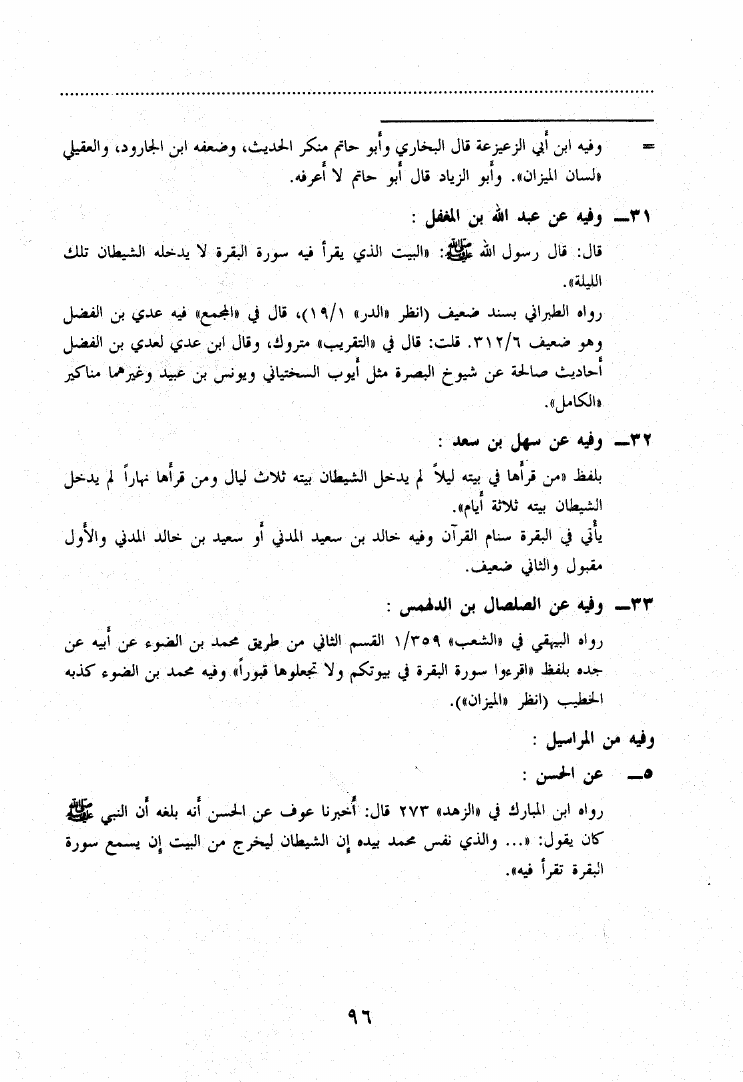 = وفيه ابن أبي الزعيزعة قال البخاري وأبو حاتم منكر الحديث، وضعفه ابن الجارود، والعقيلي
«لسان الميزان». وأبو الزياد قال أبو حاتم لا أعرفه.
٣١ـ وفيه عن عبد الله بن المغفل :
قال: قال رسول الله ﷺ: «البيت الذي يقرأ فيه سورة البقرة لا يدخله الشيطان تلك
الليلة».
رواه الطبراني بسند ضعيف (انظر «الدر» ١٩/١)، قال في «المجمع» فيه عدي بن الفضل
وهو ضعيف ٣١٢/٦. قلت: قال في «التقريب» متروك، وقال ابن عدي لعدي بن الفضل
أحاديث صالحة عن شيوخ البصرة مثل أيوب السختياني ويونس بن عبيد وغيرهما مناكير
«الكامل».
٣٢ـ وفيه عن سهل بن سعد :
بلفظ «من قرأها في بيته ليلاً لم يدخل الشيطان بيته ثلاث ليال ومن قرأها نهاراً لم يدخل
الشيطان بيته ثلاثة أيام».
يأتي في البقرة سنام القرآن وفيه خالد بن سعيد المدني أو سعيد بن خالد المدني والأول
مقبول والثاني ضعيف.
٣٣ـ وفيه عن الصلصال بن الدلهمس :
رواه البيهقي في «الشعب» ١/٣٥٩ القسم الثاني من طريق محمد بن الضوء عن أبيه عن
جده بلفظ «اقرءوا سورة البقرة في بيوتكم ولا تجعلوها قبوراً» وفيه محمد بن الضوء كذبه
الخطيب (انظر «الميزان»).
وفيه من المراسيل :
٥ـ عن الحسن :
رواه ابن المبارك في «الزهد» ٢٧٣ قال: أخبرنا عوف عن الحسن أنه بلغه أن النبي ﷺ
كان يقول: «... والذي نفس محمد بيده إن الشيطان ليخرج من البيت إن يسمع سورة
البقرة تقرأ فيه».
٩٦